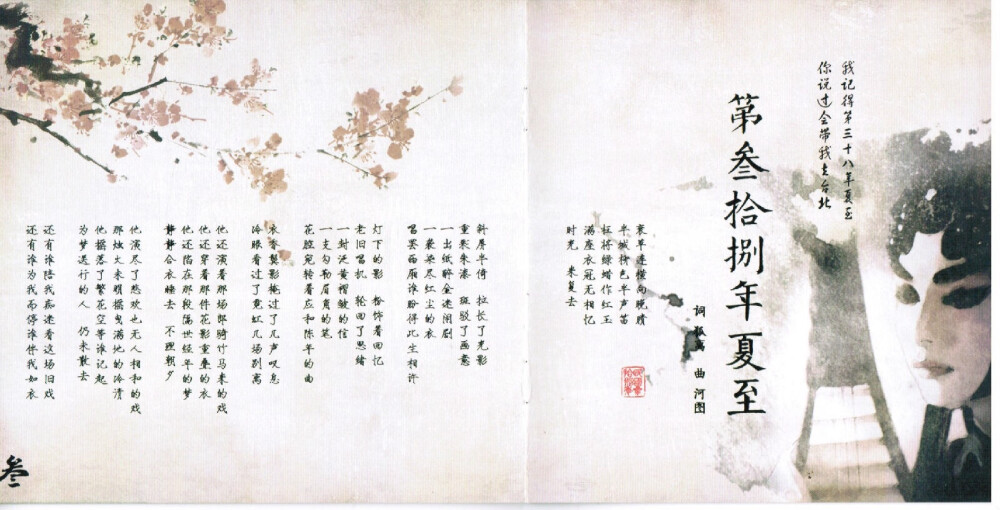 我记得第三十八年夏至
你说过会带我去台北
第叁拾捌年夏至
词 狐离 曲 河图
衰草连横向晚晴
半城柳色半声笛
枉将绿蜡作红玉
满座衣冠无相忆
时光 来复去
斜屏半倚 拉长了光影
重泼朱漆 斑驳了画意
一出纸醉金迷闹剧
一袭染尽红尘的衣
唱罢西厢谁盼得此生相许
灯下的影 粉饰着回忆
老旧唱机 轮回了思绪
一封泛黄褶皱的信
一支勾勒眉角的笔
花腔宛转着应和陈年的曲
衣香鬓影掩过了几声叹息
冷眼看过了霓虹几场别离
他还演着那场郎骑竹马来的戏
他还穿着那件花影重叠的衣
他还陷在那段隔世经年的梦
静静合衣睡去 不理朝夕
他演尽了悲欢也无人相和的戏
那烛火未明摇曳满地的冷清
他摇落了繁花空等谁记起
为梦送行的人 仍未散去
还有谁陪我痴迷看这场旧戏
还有谁为我而停谁伴我如衣
叁